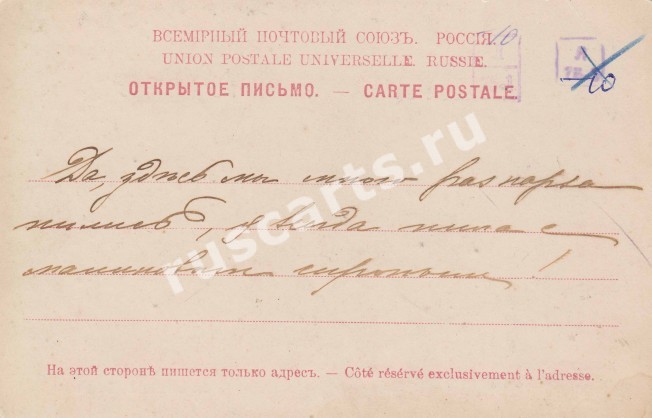 ВСЕМІРНЫЙ ПОЧТОВЫЙ СОЮЗЪ. РОССІЯ.
UNION POSTALE UNIVERSELLE. RUSSIE.
ОТКРЫТОЕ ПИСЬМО. — CARTE POSTALE.
10
Да, здѣсь мы много раз
я всегда пила с
малиновым сиропом!
На этой сторонѣ пишется только адресъ. — Côté résérvé exclusivement à l'adresse.
ruscarts.ru